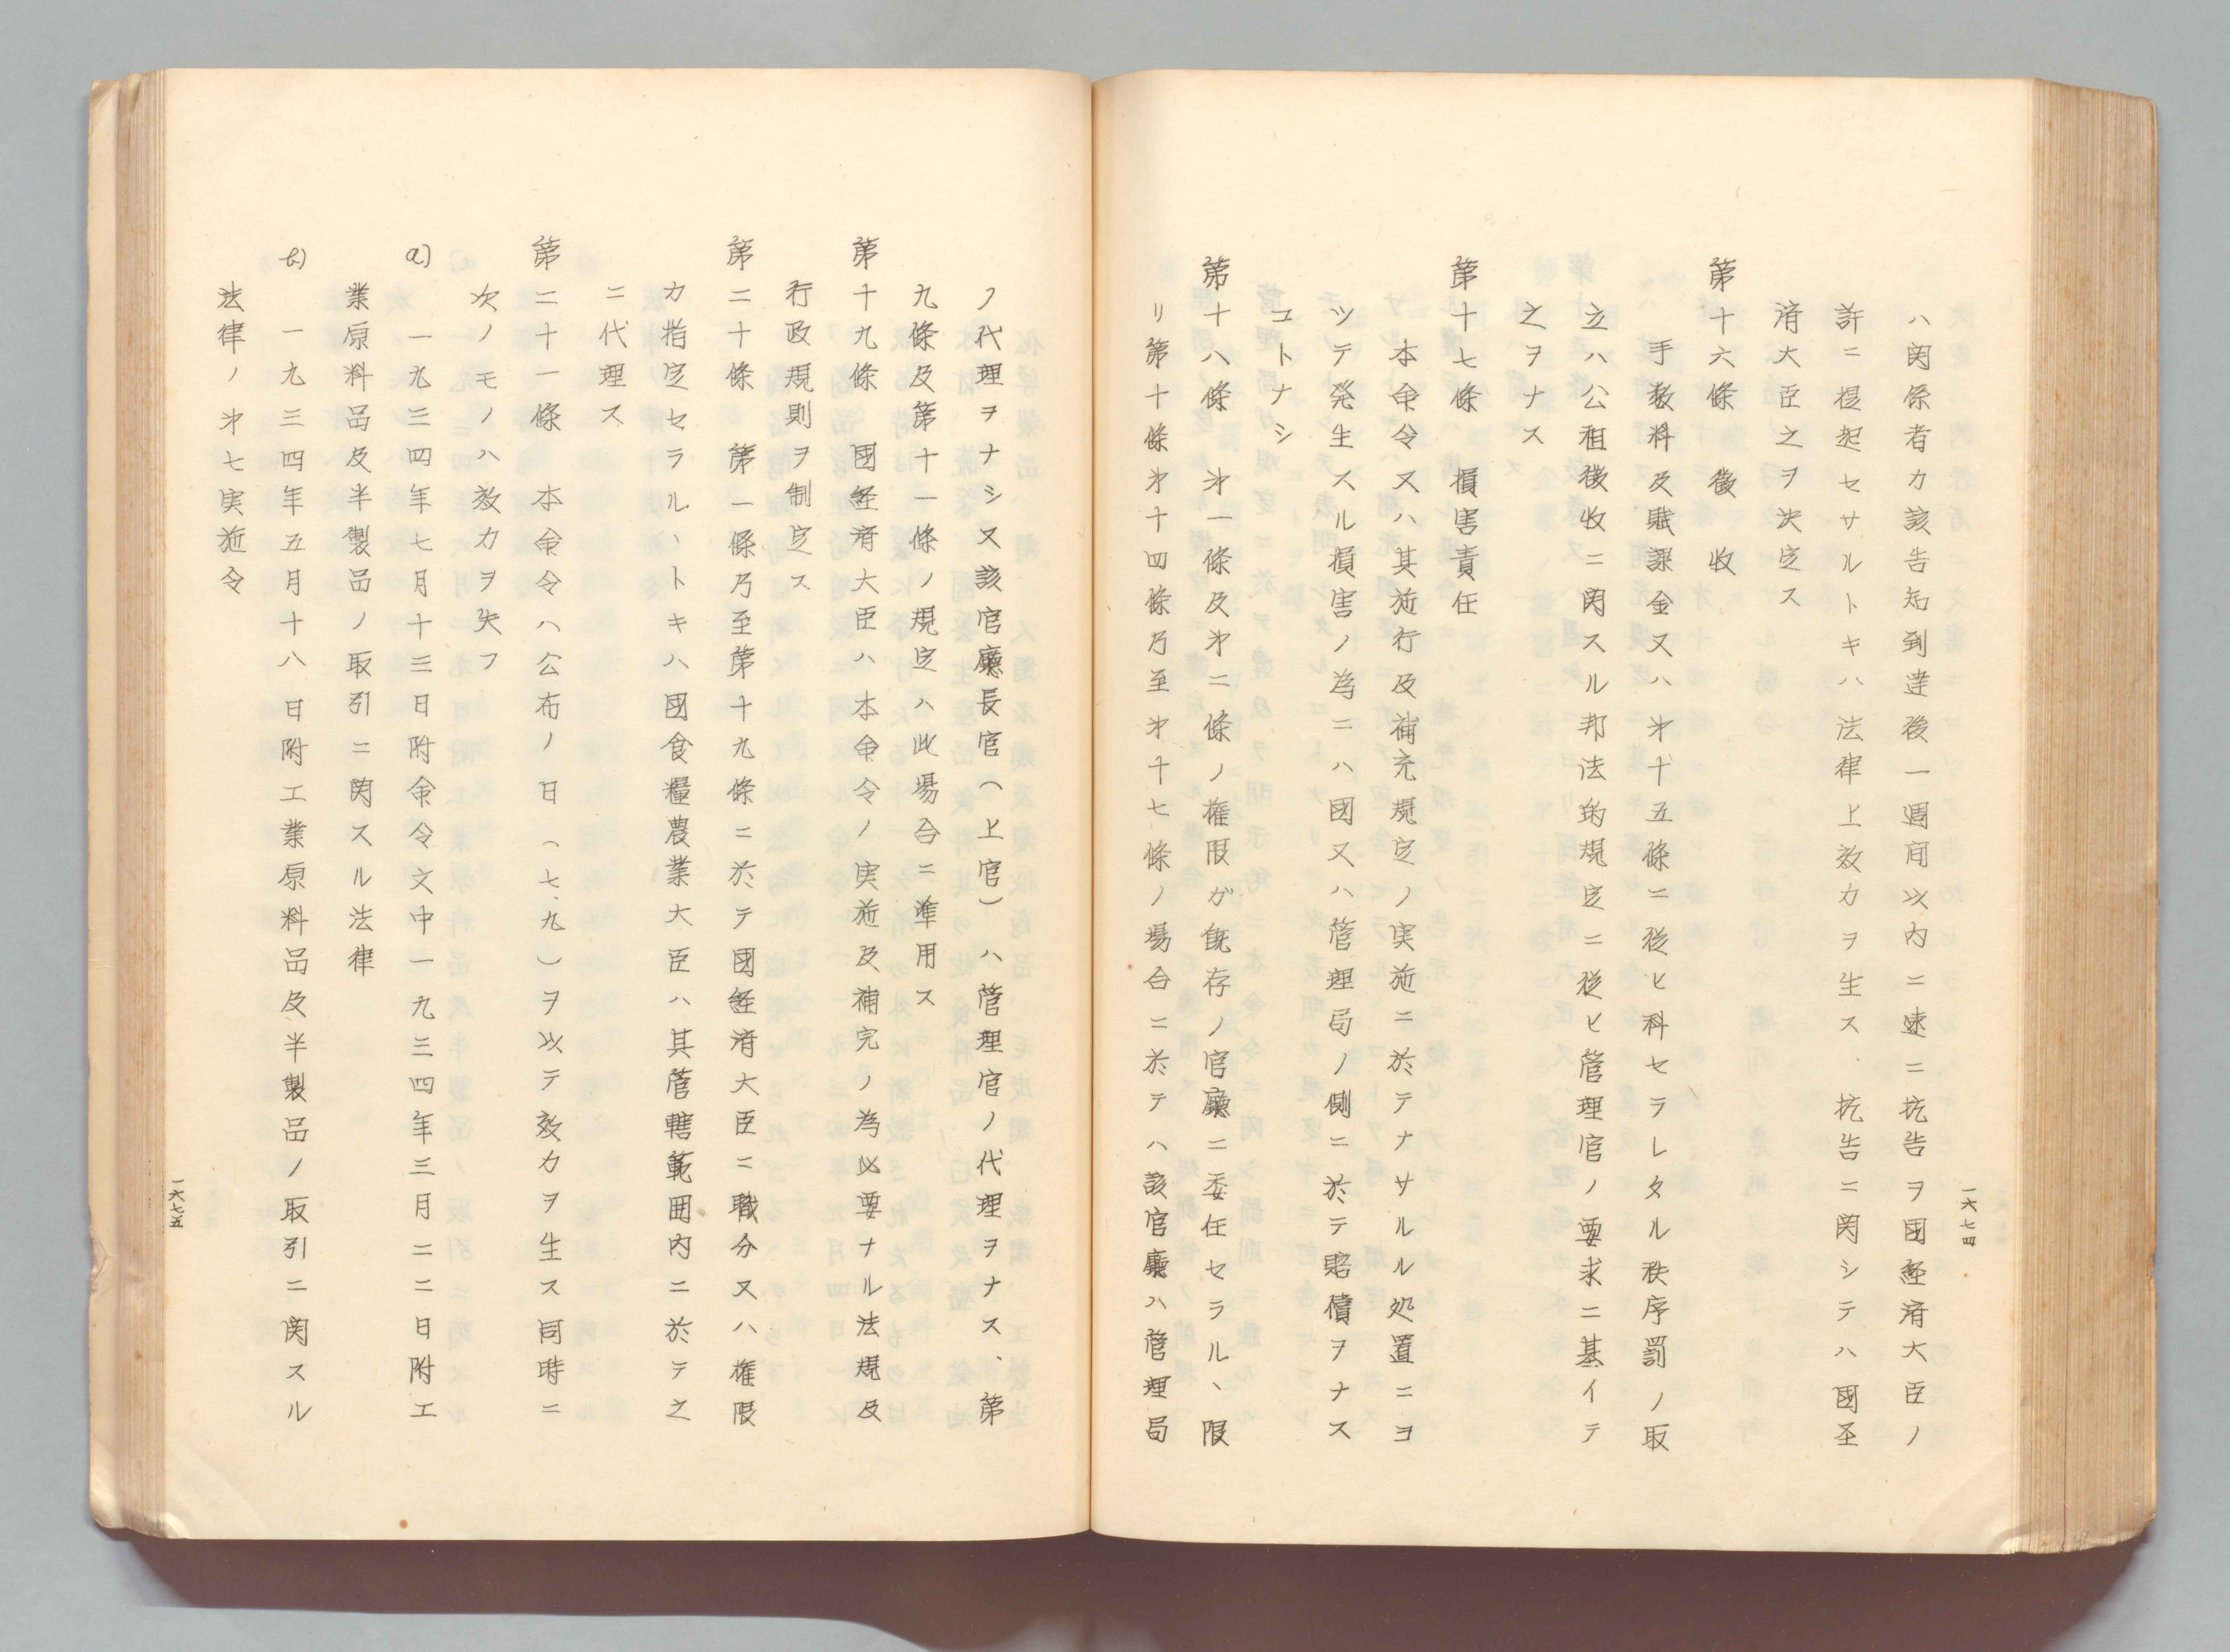 ハ関係者カ該告知到達後一週間以内ニ速ニ抗告ヲ國経済大臣ノ
許ニ提起セサルトキハ法律上效カヲ生ス、抗告ニ関シテハ國圣
済大臣之ヲ决定ス
第十六條 徴收
手数料及賦課金又ハ㐧十五條ニ從ヒ科セラレタル秩序罰ノ取
立ハ公租徴收ニ関スル邦法的規定ニ從ヒ管理官ノ要求ニ基イテ
之ヲナス
第十七條 損害責任
本命令又ハ其施行及補充規定ノ実施ニ於テナサルル処置ニヨ
ツテ発生スル損害ノ為ニハ國又ハ管理局ノ側ニ於テ賠償ヲナス
コトナシ
第十八條 㐧一條及㐧二條ノ権限ガ既存ノ官廳ニ委任セラル、限
リ第十條㐧十四條乃至㐧十七條ノ場合ニ於テハ該官廳ハ管理局
一六七四
ノ代理ヲナシ又該官廳長官(上官)ハ管理官ノ代理ヲナス、第
九條及第十一條ノ規定ハ此場合ニ準用ス
第十九條 國経済大臣ハ本命令ノ実施及補完ノ為必要ナル法規及
行政規則ヲ制定ス
第二十條 第一條乃至第十九條ニ於テ國経済大臣ニ職分又ハ権限
カ指定セラル、トキハ國食糧農業大臣ハ其管轄範囲内ニ於テ之
ニ代理ス
第二十一條 本命令ハ公布ノ日(七、九)ヲ以テ效カヲ生ス同時ニ
次ノモノハ效カヲ失フ
a) 一九三四年七月十三日附命令文中一九三四年三月二二日附工
業原料品及半製品ノ取引ニ関スル法律
b) 一九三四年五月十八日附工業原料品及半製品ノ取引ニ関スル
法律ノ㐧七実施令
一六七五